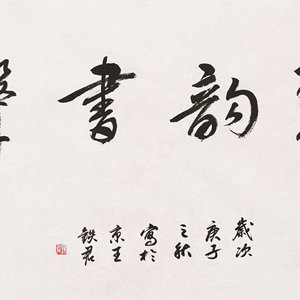 韵書
歲次
庚子
之秋
寫於
京王
鉄君